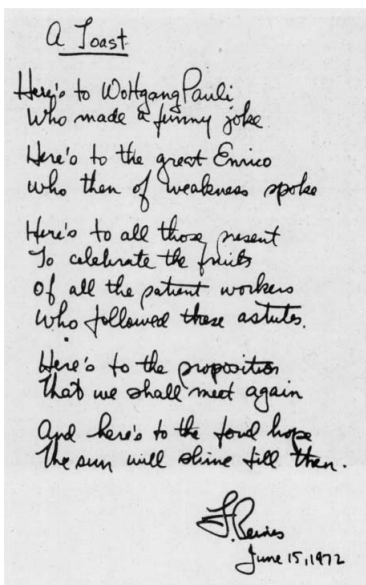 A Toast
Here's to Wolfgang Pauli
Who made a funny joke
Here's to the great Enrico
Who then of weakness spoke
Here's to all those present
To celebrate the fruits
Of all the patient workers
Who followed these astutes.
Here's to the proposition
That we shall meet again
And here's to the fond hope
The sun will shine till then.
F. Reines
June 15, 1972